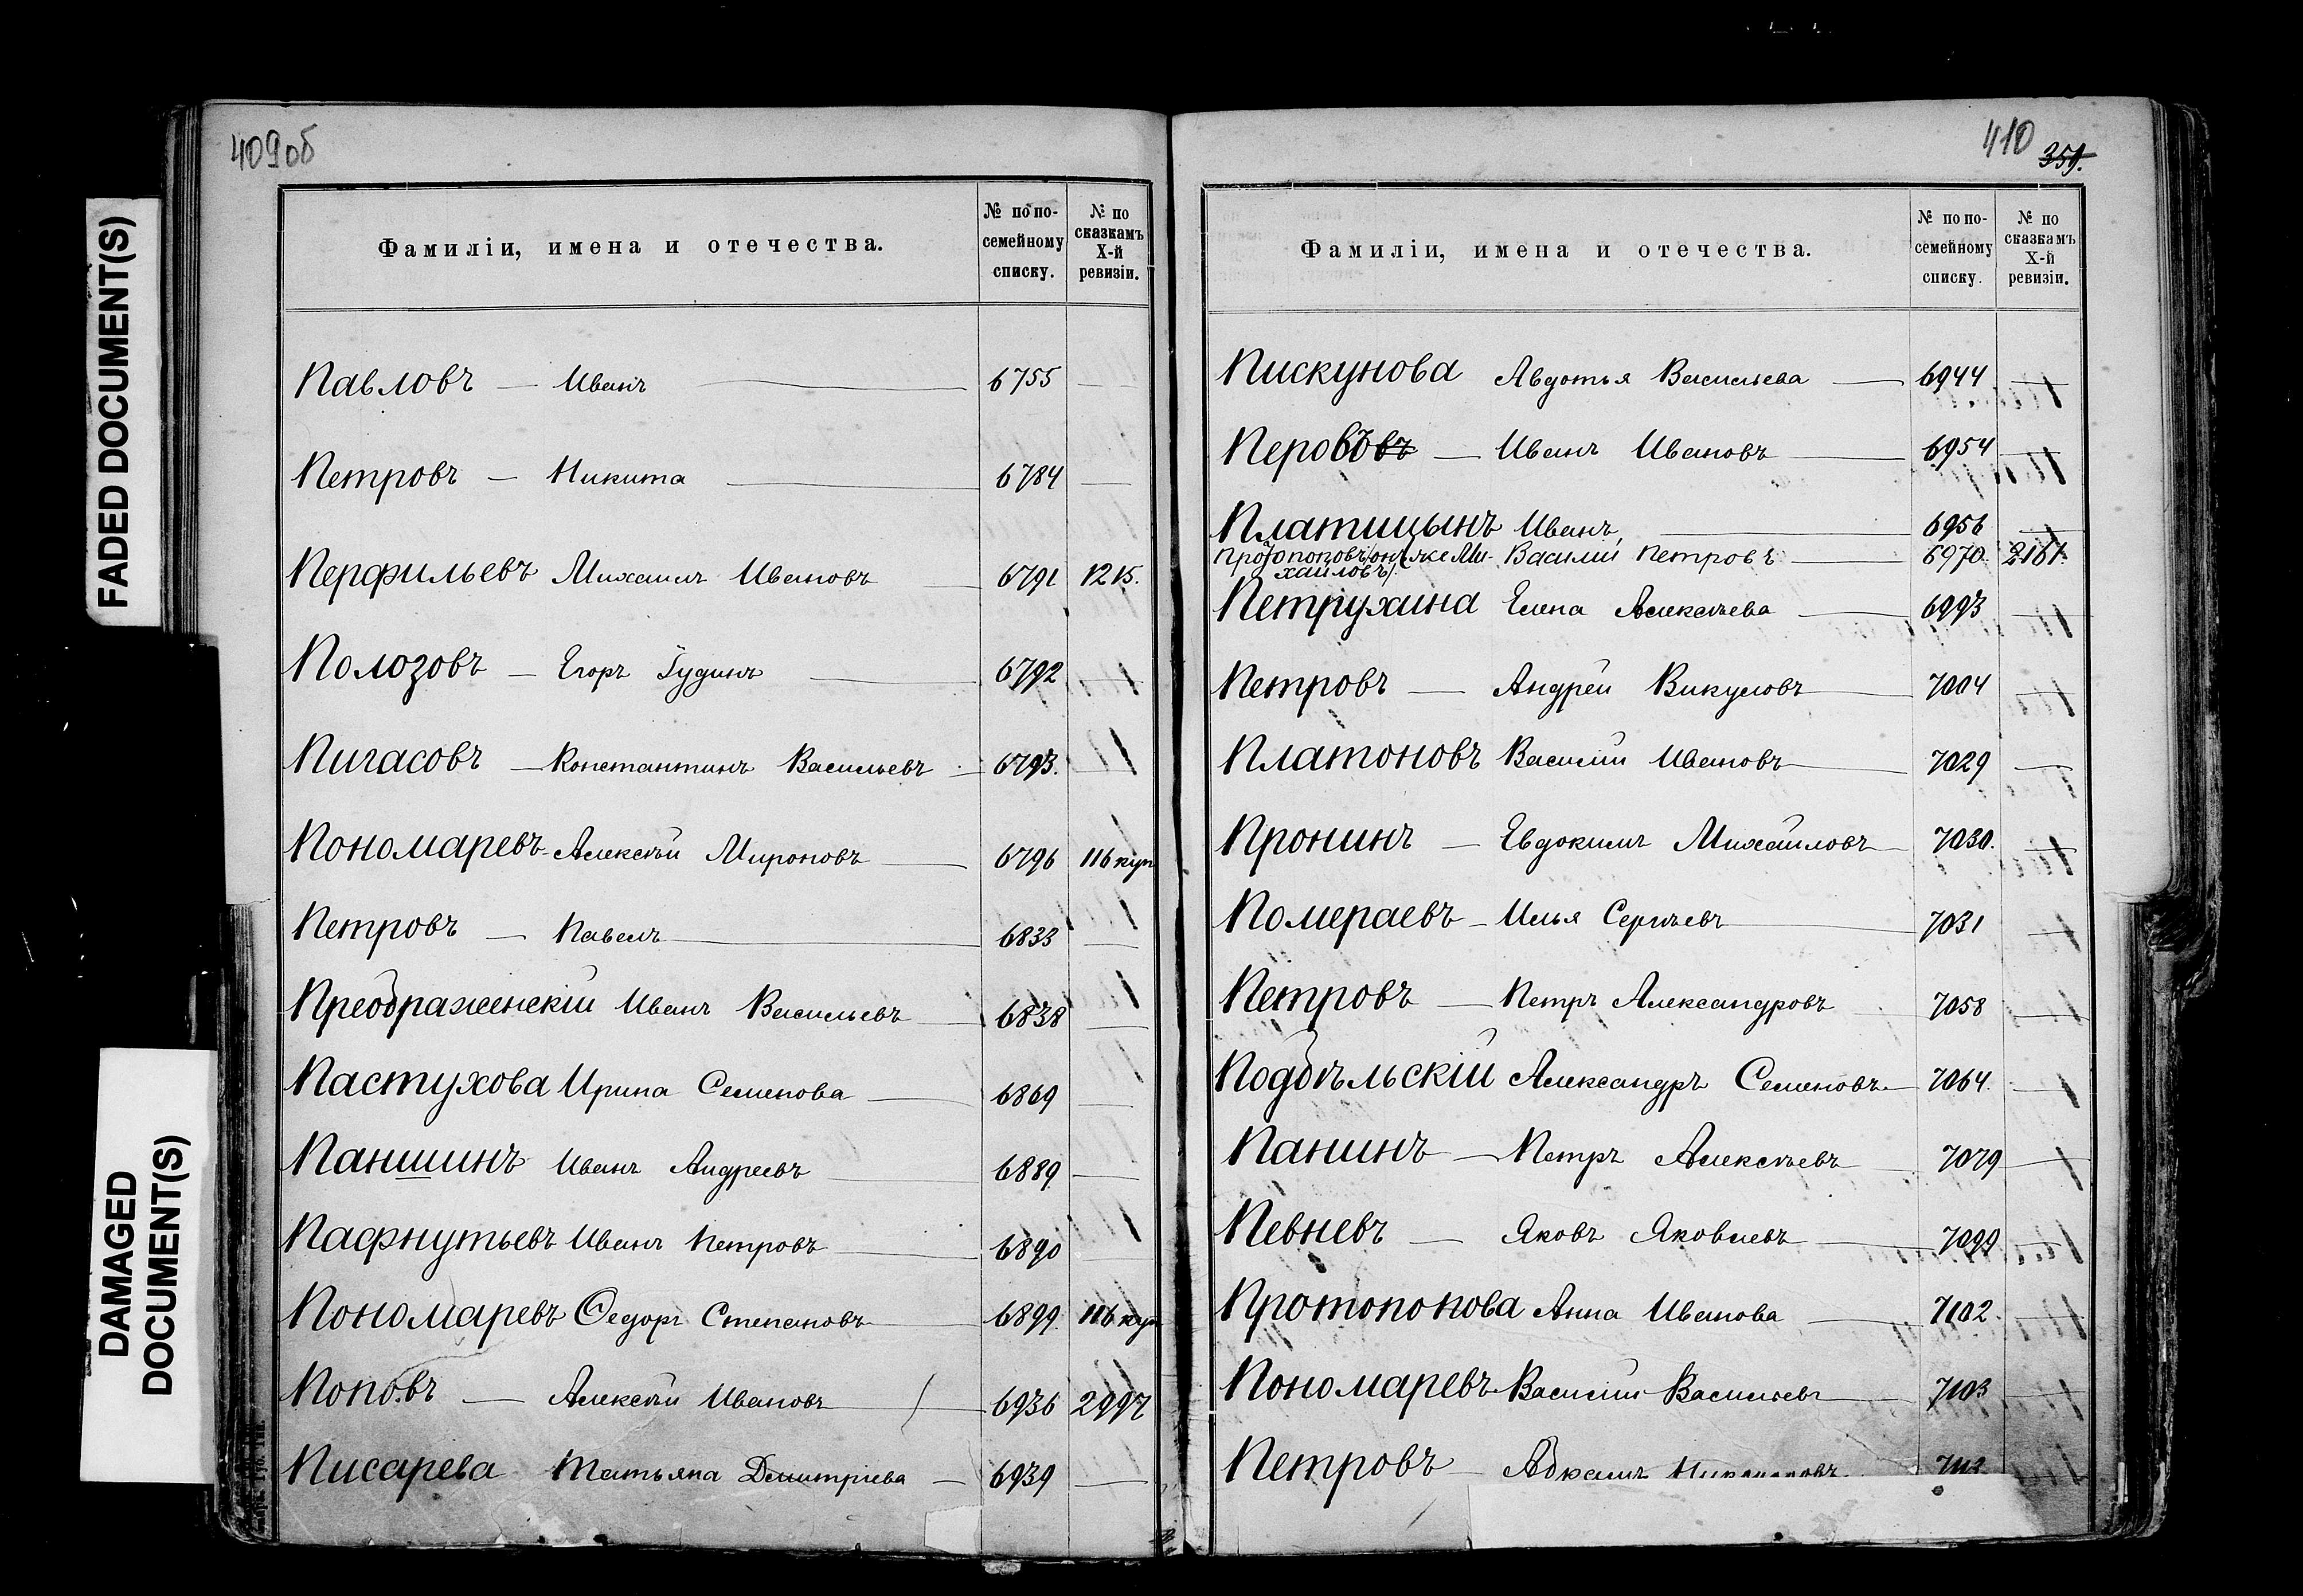 FADED DOCUMENT(S)
DAMAGED
DOCUMENT(S)
409об
Фамиліи, имена и отечества.
№ по по-
семейному
списку.
№ по
сказкамъ
X-й
ревизіи.
Павловъ — Иванъ — 6755 —
Петровъ — Никита — 6784 —
Перфильевъ Михаилъ Ивановъ — 6791 1215.
Полозовъ — Егоръ Іудинъ — 6792 —
Пигасовъ — Константинъ Васильевъ — 6793. —
Пономаревъ Алексѣй Мироновъ — 6796 116 куп
Петровъ — Павелъ — 6833 —
Преображенскій Иванъ Васильевъ — 6838 —
Пастухова Ирина Семенова — 6869 —
Паншинъ Иванъ Андреевъ — 6889 —
Пафнутьевъ Иванъ Петровъ — 6890 —
Пономаревъ Ѳедоръ Степановъ — 6899 116 куп
Поповъ — Алексѣй Ивановъ — 6936 2997
Писарева Татьяна Дмитріева — 6939 —
410
359.
Фамиліи, имена и отечества.
№ по по-
семейному
списку.
№ по
сказкамъ
X-й
ревизіи.
Пискунова Авдотья Васильева — 6944 —
Перовъ — Иванъ Ивановъ — 6954 —
Платицынъ Иванъ — 6956 —
Протопоповъ /онъ же Ми- Василій Петровъ — 6970 2161.
хайловъ/
Петрухина Елена Алексѣева — 6993 —
Петровъ — Андрей Викуловъ — 7004 —
Платоновъ Василій Ивановъ — 7029 —
Пронинъ — Евдокимъ Михайловъ — 7030. —
Помераевъ — Илья Сергѣевъ — 7031 —
Петровъ — Петръ Александровъ — 7058 —
Подбѣльскій Александръ Семеновъ — 7064. —
Панинъ — Петръ Алексѣевъ — 7079 —
Певневъ — Яковъ Яковлевъ — 7099 —
Протопопова Анна Иванова — 7102. —
Пономаревъ Василій Васильевъ — 7103 —
Петровъ —